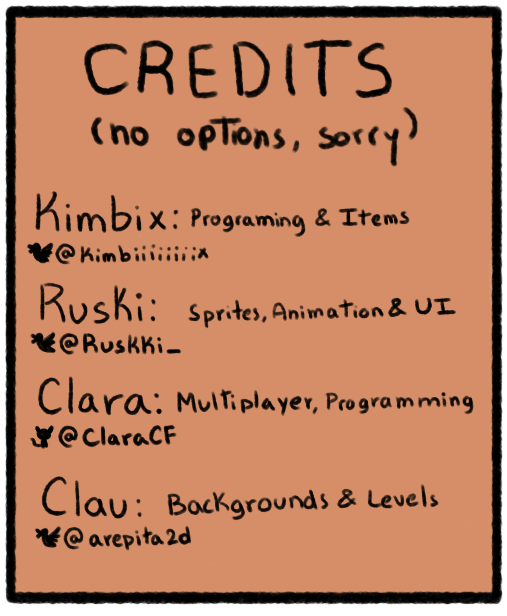 CREDITS
(no options, sorry)
Kimbix: Programing & Items
@Kimbiiiiiiiix
Ruski: Sprites, Animation & UI
@Ruskki_
Clara: Multiplayer, Programming
@ClaraCF
Clau: Backgrounds & Levels
@arepita2d